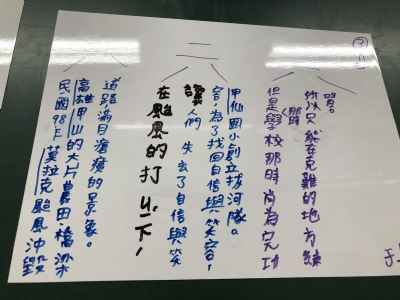 民國98年莫拉克颱風沖毀
高雄甲仙的大片農田橋梁
道路,滿目瘡痍的景象。
二
在颱風的打ㄐㄧ下,
讓人們失去了自信與笑
容,為了找回自信與笑容,
甲仙國小創立拔河隊。
但是學校那時尚為完功
那時
所以只能在克難的地方練
習。